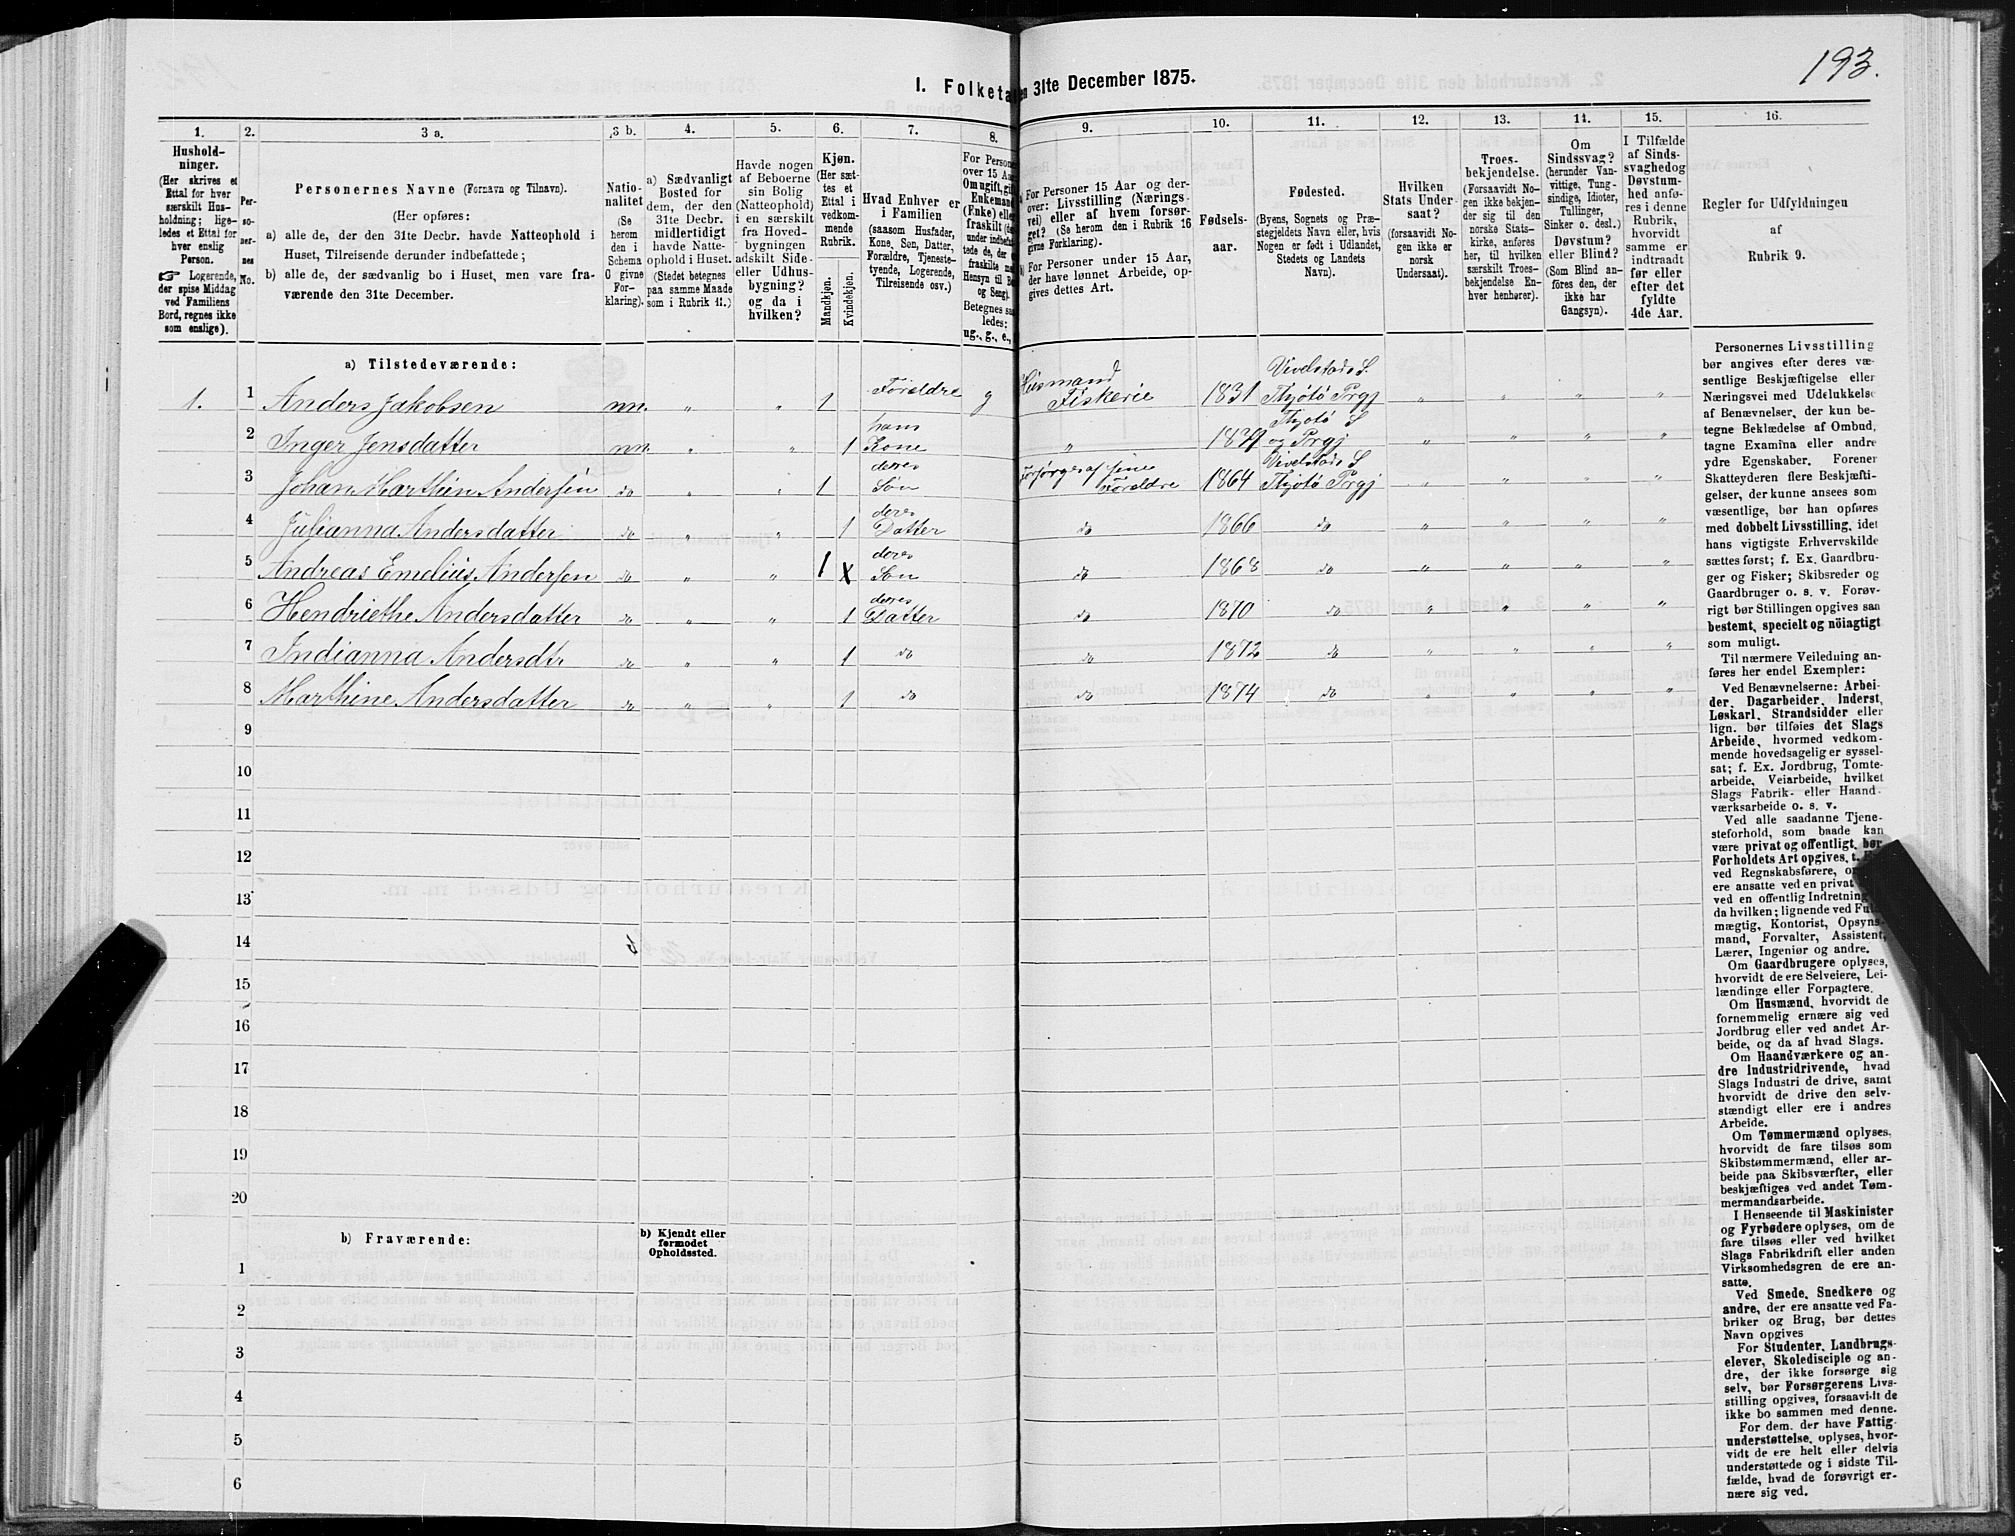 193.
I. Folketal den 31te December 1875.
1. 2. 3 a. 3 b. 4. 5. 6. 7. 8. 9. 10. 11. 12. 13. 14. 15. 16.
Hushold-
ninger.
(Her skrives et
Ettal for hver
særskilt Hus-
holdning; lige-
ledes et Ettal for
hver enslig
Person.
☞ Logerende,
der spise Middag
ved Familiens
Bord, regnes ikke
som enslige).
Per-
so-
ner-
nes
No.
Personernes Navne (Fornavn og Tilnavn).
(Her opføres:
a) alle de, der den 31te Decbr. havde Natteophold i
Huset, Tilreisende derunder indbefattede;
b) alle de, der sædvanlig bo i Huset, men vare fra-
værende den 31te December.
Natio-
nalitet
(Se
herom
den i
Schema
C givne
For-
klaring).
a) Sædvanligt
Bosted for
dem, der den
31te Decbr.
midlertidigt
havde Natte-
ophold i Huset.
(Stedet betegnes
paa samme Maade
som i Rubrik 11.)
Havde nogen
af Beboerne
sin Bolig
(Natteophold)
i en særskilt
fra Hoved-
bygningen
adskilt Side-
eller Udhus-
bygning?
og da i
hvilken?
Kjøn.
(Her sæt-
tes et
Ettal i
vedkom-
mende
Rubrik.
Mandkjøn.
Kvindekjøn.
Hvad Enhver er
i Familien
(saasom Husfader,
Kone, Søn, Datter,
Forældre, Tjeneste-
tyende, Logerende,
Tilreisende osv.)
For Personer
over 15 Aar:
Om ugift, gift,
Enkemand
(Enke) eller
fraskilt
under indbefat-
tede de, der ere
fraskilte med
Hensyn til Bord
og Seng).
Betegnes saa-
ledes:
ug., g., e.,
For Personer 15 Aar og der-
over: Livsstilling (Nærings-
vei) eller af hvem forsør-
get? (Se herom den i Rubrik 16
givne Forklaring).
For Personer under 15 Aar,
der have lønnet Arbeide, op-
gives dettes Art.
Fødsels-
aar.
Fødested.
(Byens, Sognets og Præ-
stegjeldets Navn eller, hvis
Nogen er født i Udlandet,
Stedets og Landets
Navn).
Hvilken
Stats Under-
saat?
(forsaavidt No-
gen ikke er
norsk
Undersaat).
Troes-
bekjendelse.
(Forsaavidt No-
gen ikke bekjen-
der sig til den
norske Stats-
kirke, anføres
her, til hvilken
særskilt Troes-
bekjendelse En-
hver henhører).
Om
Sindssvag?
(herunder Van-
vittige, Tung-
sindige, Idioter,
Tullinger,
Sinker o. desl.)
Døvstum?
eller Blind?
(Som Blind an-
føres den, der
ikke har
Gangsyn).
I Tilfælde
af Sinds-
svaghed og
Døvstum-
hed anfø-
res i denne
Rubrik,
hvorvidt
samme er
indtraadt
før eller
efter det
fyldte
4de Aar.
Regler for Udfyldningen
af
Rubrik 9.
a) Tilstedeværende:
1. 1 Anders Jakobsen nn. „ „ 1 Foreldre g Husmand Fiskerie 1831 Vivelstads S. Thjøtø Prgj „ „ „ „
2 Inger Jensdatter nn. „ „ 1 hans Kone „ Thjøtø S og Prgj „ „ „ „
3 Johan Marthin Andersen do „ „ 1 deres Søn Forsørges af sine Foreldre 1864 Vivelstads S Thjøtø Prgj „ „ „ „
4 Julianna Andersdatter do „ „ 1 deres Datter do 1866 do „ „ „ „
5 Andreas Emelius Andersen do „ „ 1 X deres Søn do 1868 do „ „ „ „
6 Hendriethe Andersdatter do „ „ 1 deres Datter do 1870 do „ „ „ „
7 Indianna Andersdtr do „ „ 1 do do 1872 do „ „ „ „
8 Marthine Andersdatter do „ „ 1 do do 1874 do „ „ „ „
9
10
11
12
13
14
15
16
17
18
19
20
b) Fraværende:
b) Kjendt eller
formodet
Opholdssted.
1
2
3
4
5
6
Personernes Livsstilling
bør angives efter deres væ-
sentlige Beskjæftigelse eller
Næringsvei med Udelukkelse
af Benævnelser, der kun be-
tegne Beklædelse af Ombud,
tagne Examina eller andre
ydre Egenskaber. Forener
Skatteyderen flere Beskjæfti-
gelser, der kunne ansees som
væsentlige, bør han opføres
med dobbelt Livsstilling, idet
hans vigtigste Erhvervskilde
sættes først; f. Ex. Gaardbru-
ger og Fisker; Skibsreder og
Gaardbruger o. s. v. Forøv-
rigt bør Stillingen opgives saa
bestemt, specielt og nöiagtigt
som muligt.
Til nærmere Veiledning an-
føres her endel Exempler:
Ved Benævnelserne: Arbei-
der, Dagarbeider, Inderst,
Løskarl, Strandsidder eller
lign. bør tilføies det Slags
Arbeide, hvormed vedkom-
mende hovedsagelig er syssel-
sat; f. Ex. Jordbrug, Tomte-
arbeide, Veiarbeide, hvilket
Slags Fabrik- eller Haand-
værksarbeide o. s. v.
Ved alle saadanne Tjene-
steforhold, som baade kan
være privat og offentligt, bør
Forholdets Art opgives, t.
ved Regnskabsførere, om de
ere ansatte ved en privat
ved en offentlig Indretning
da hvilken; lignende ved Ful-
mægtig, Kontorist, Opsyns-
mand, Forvalter, Assistent,
Lærer, Ingeniør og andre.
Om Gaardbrugere oplyses,
hvorvidt de ere Selveiere, Lei-
lændinge eller Forpagtere.
Om Husmænd, hvorvidt de
fornemmelig ernære sig ved
Jordbrug eller ved andet Ar-
beide, og da af hvad Slags.
Om Haandværkere og an-
dre Industridrivende, hvad
Slags Industri de drive, samt
hvorvidt de drive den selv-
stændigt eller ere i andres
Arbeide.
Om Tømmermænd oplyses,
hvorvidt de fare tilsøs som
Skibstømmermænd, eller ar-
beide paa Skibsværfter, eller
beskjæftiges ved andet Tøm-
mermandsarbeide.
I Henseende til Maskinister
og Fyrbødere oplyses, om de
fare tilsøs eller ved hvilket
Slags Fabrikdrift eller anden
Virksomhedsgren de ere an-
satte.
Ved Smede, Snedkere og
andre, der ere ansatte ved Fa-
briker og Brug, bør dettes
Navn opgives
For Studenter, Landbrugs-
elever, Skoledisciple og an-
dre, der ikke forsørge sig
selv, bør Forsørgerens Livs-
stilling opgives, forsaavidt de
ikke bo sammen med denne.
For dem, der have Fattig-
understøttelse, oplyses, hvor-
vidt de ere helt eller delvis
understøttede og i sidste Til-
fælde, hvad de forøvrigt er-
nære sig ved.